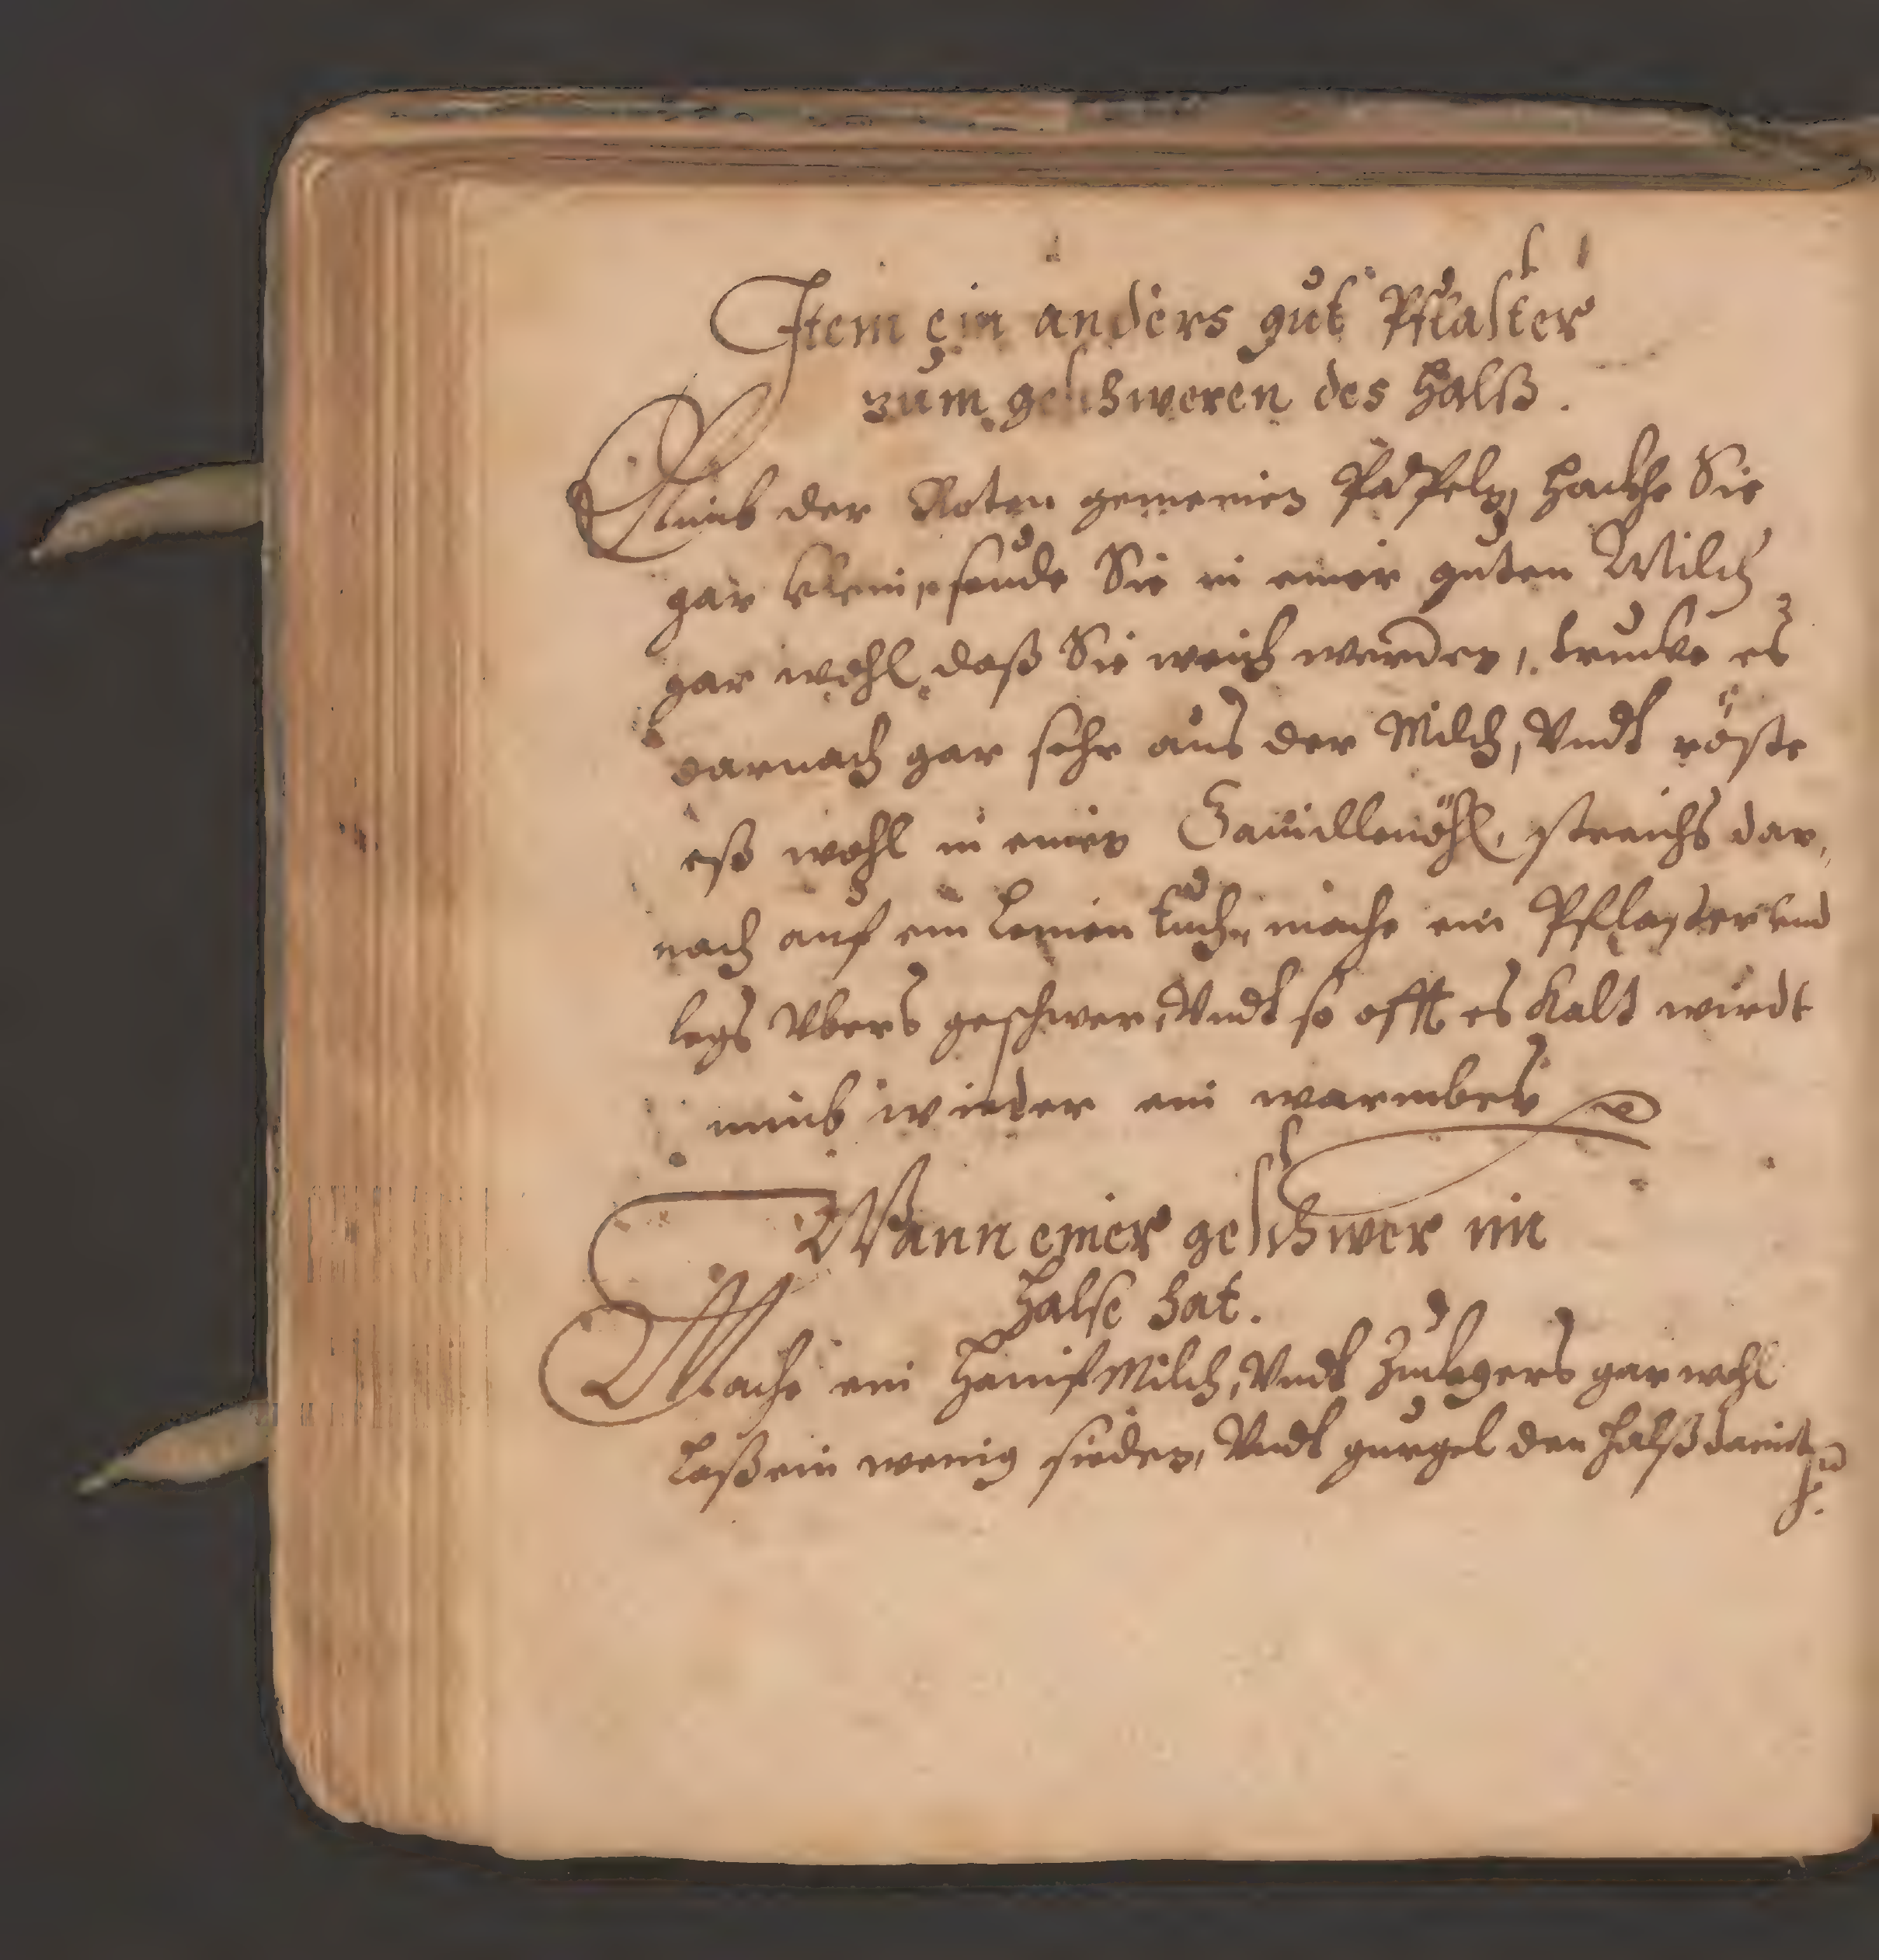 Item ein anders gut Pflaster
zum geschweren des Halß.
Nimb der Roten gemeinen Pappeln, hackhe Sie
gar klein, seude Sie in einer guten Milch
gar wohl daß Sie weich werden, trucke es
darnach gar sehr aus der Milch, Vndt röste
eß wohl in einen Camillenöhl, streichs dar,
nach auf ein Leinen tuch, mache ein Pflaster vnd
legs Vbers geschwer, Vndt so offt es kalt wirdt
nimb wieder ein warmbes
Wann einer geschwer im
Halse hat.
Mache ein HanifMilch, Vndt gar wohl
Laß ein wenig sieden, Vndt gurgel den Halß damit